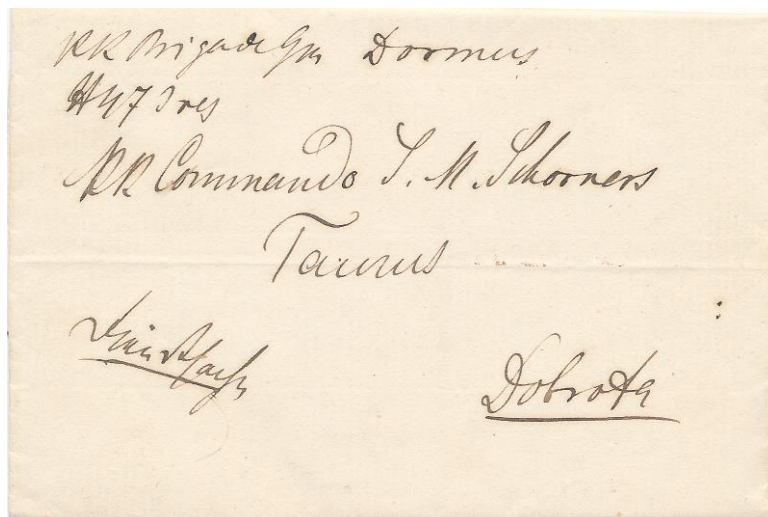 KK Brigade Gm Dormus
N 47 Res
KK Commando S. M. Schooners
Taurus
Dienstsache
Dobrota